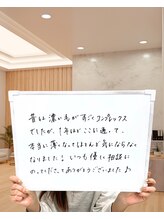 昔は濃い毛がすごくコンプレックス
でしたが、1年ほどここに通って、
本当に薄くなってほとんど気にならなく
なりました！いつも優しく相談に
のってくださってありがとうございました♪